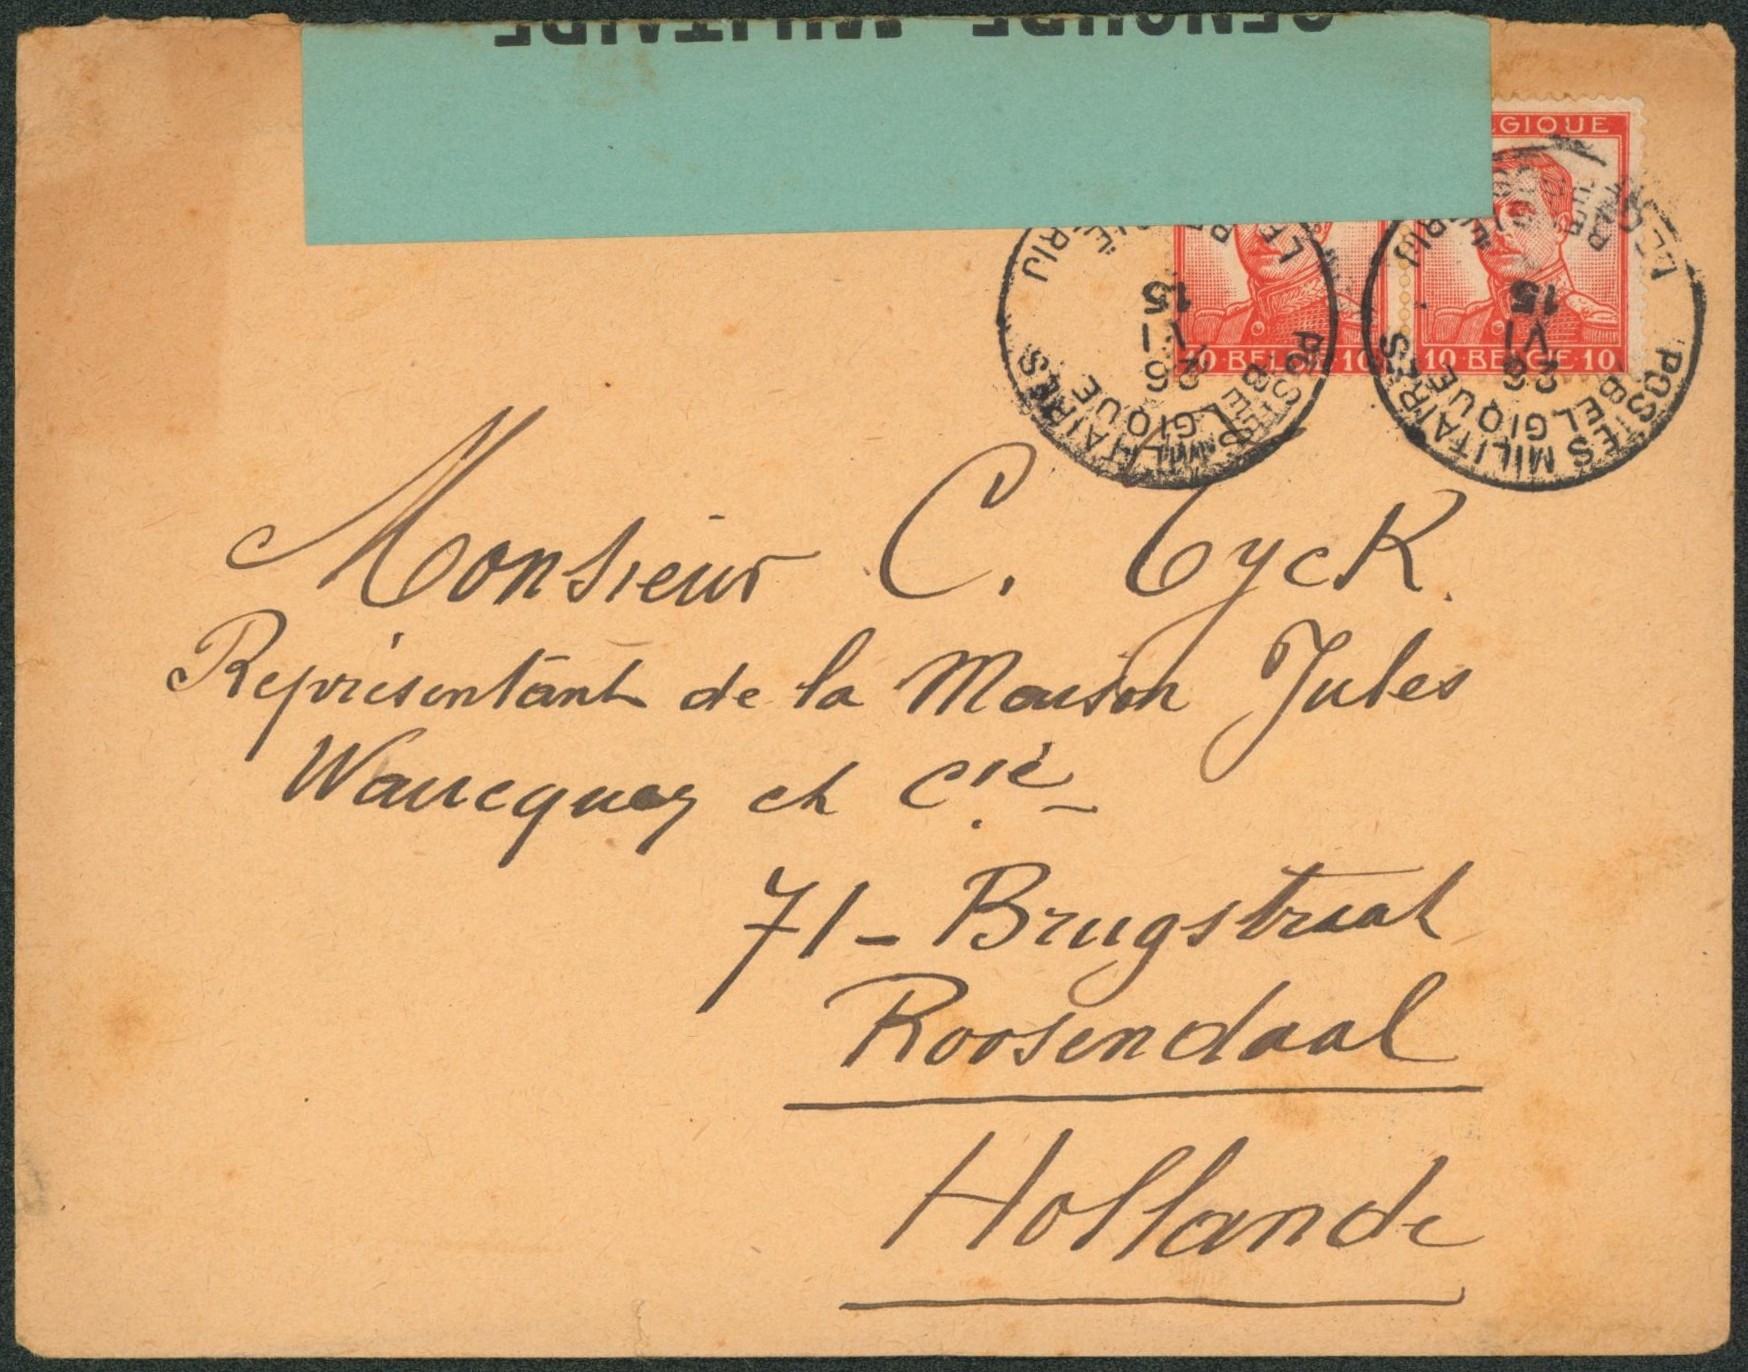 CENSURE MILITAIRE
GIQUE
10 · BELGIE · 10
10 · BELGIE · 10
POSTES MILITAIRES
BELGIQUE
26
VI
15
POSTES MILITAIRES
BELGIQUE
26
VI
15
Monsieur C. Cyck.
Représentant de la Maison Jules
Waucquez et Cie
71 - Brugstraat
Roosendaal
Hollande